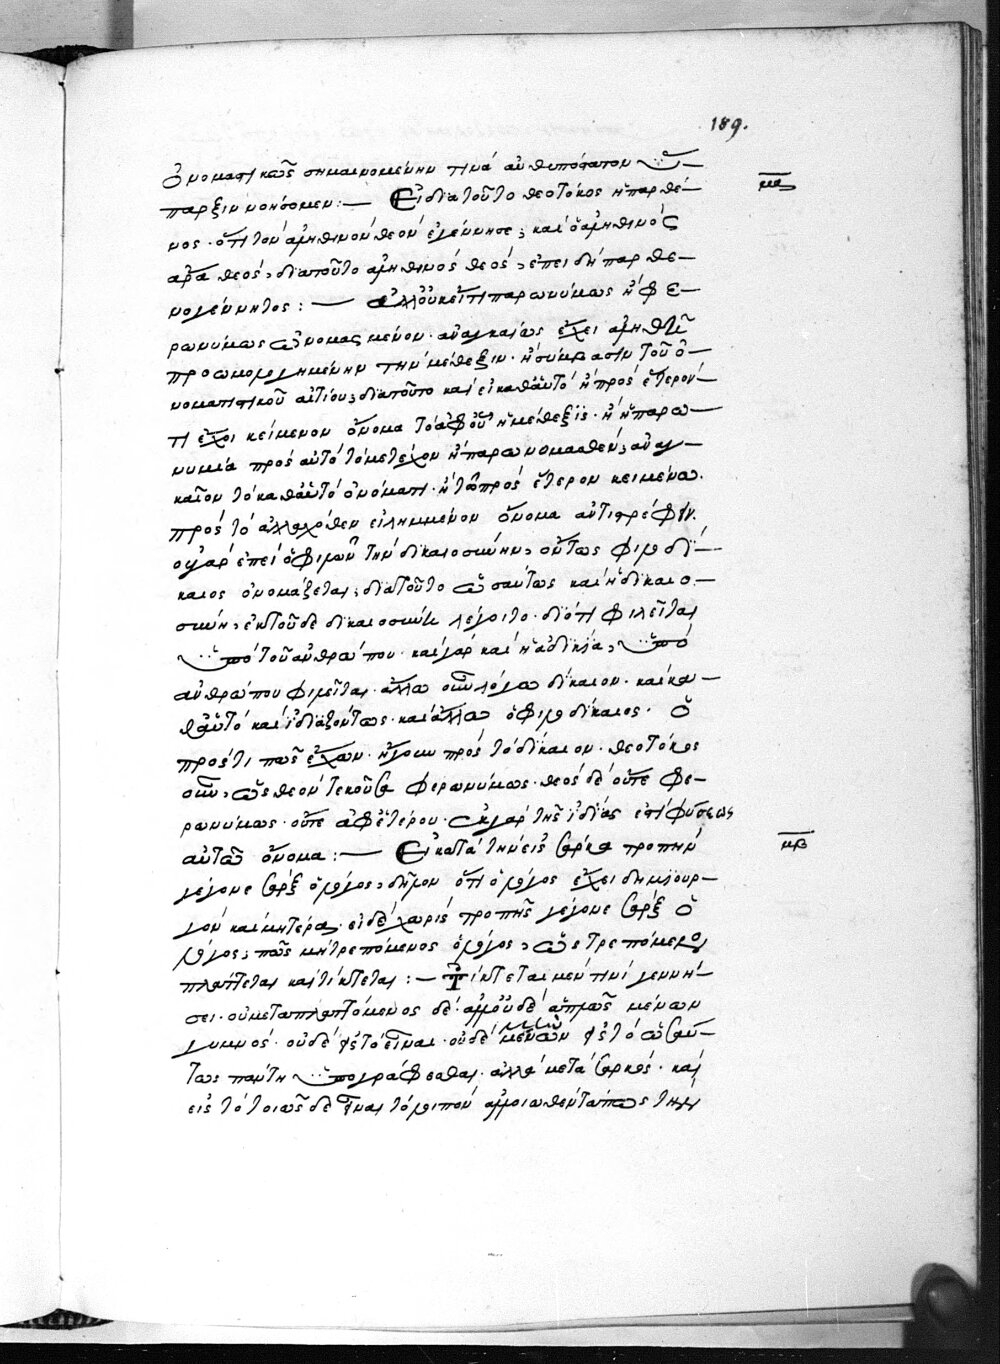 189.
ὀνοματικῶς σημαινομένην τινὰ ἀνθυπόστατον ὕ–
παρξιν νοήσομεν :— Εἰ διατοῦτο θεοτόκος ἡ παρθέ– μα
νος · ὅτι τὸν ἀληθινὸν θεὸν ἐγέννησε ; καὶ ὁ ἀληθινὸς
ἄρα θεός, διατοῦτο ἀληθινὸς θεός, ἐπειδὴ παρθε–
νογέννητος :— ἀλλ' οὐκ εἴ τι παρωνύμως ἢ φε–
ρωνύμως ὠνομασμένον · ἀναγκαίως ἔχει
προωμολογημένην τὴν μέθεξιν · ἢ σύμβασιν τοῦ ὀ–
νοματιστικοῦ αἰτίου ; διατοῦτο καὶ εἰ καθ' αὑτὸ ἢ πρὸς ἕτερόν
τι ἔχοι κείμενον ὄνομα τὸ ἀφ' οὗ ἡ μέθεξις · ἢ ἡ παρω–
νυμία πρὸς αὐτὸ τὸ μετέχον ἢ παρωνομασθέν ; ἀναγ–
καῖον τὸ καθ' αὑτὸ ὀνόματι · ἢ τῷ πρὸς ἕτερον κειμένω.
πρὸς τὸ ἀλλαχόθεν εἰλημμένον ὄνομα ἀντιστρέφειν.
οὐ γὰρ ἐπεὶ ὁ φιλῶν τὴν δικαιοσύνην, οὗτος φιλοδί–
καιος ὀνομάζεται ; διατοῦτο ὡσαύτως καὶ ἡ δικαιο–
σύνη, ἐκ τοῦδε δικαιοσύνη λέγοιτο · διότι φιλεῖται
ὑπὸ τοῦ ἀνθρώπου · καὶ γὰρ καὶ ἡ ἀδικία, ὑπὸ
ἀνθρώπου φιλεῖται · ἄλλω οὖν λόγω δίκαιον · καὶ κα–
θ' αὑτὸ καὶ ἰδιαζόντως · καὶ ἄλλω ὁ φιλοδίκαιος · ὁ
πρός τι πως ἔχων · ἤγουν πρὸς τὸ δίκαιον · θεοτόκος
οὖν, ὡς θεὸν τεκοῦσα φερωνύμως · θεὸς δὲ οὔτε φε–
ρωνύμως · οὔτε ἀφ' ἑτέρου · ἐκ γὰρ τῆς ἰδίας ἐστὶ φύσεως
αὐτῶ ὄνομα :— Εἰ κατὰ τὴν εἰς σάρκα τροπὴν μβ
γέγονε σὰρξ ὁ λόγος, δῆλον ὅτι ὁ λόγος ἔχει δημιουρ–
γὸν καὶ μητέρα · εἰ δὲ χωρὶς τροπῆς γέγονε σὰρξ ὁ
λόγος ; πῶς μὴ τρεπόμενος ὁ λόγος, ὡς τρεπόμενος
πλάττεται καὶ τίκτεται :— Τίκτεται μὲν τινὶ γεννή–
σει · οὐ μεταπλαττόμενος δέ · ἀλλ' οὐδὲ ἁπλῶς μένων
γυμνός · οὐδὲ εἰς τὸ εἶναι · οὐδὲ μένων εἰς τὸ ὡσαύ–
τως πάντη ὑπογράφεσθαι · ἀλλὰ μετὰ σαρκός · καὶ
εἰς τὸ τοιῶσδε εἶναι τὸ λοιπὸν